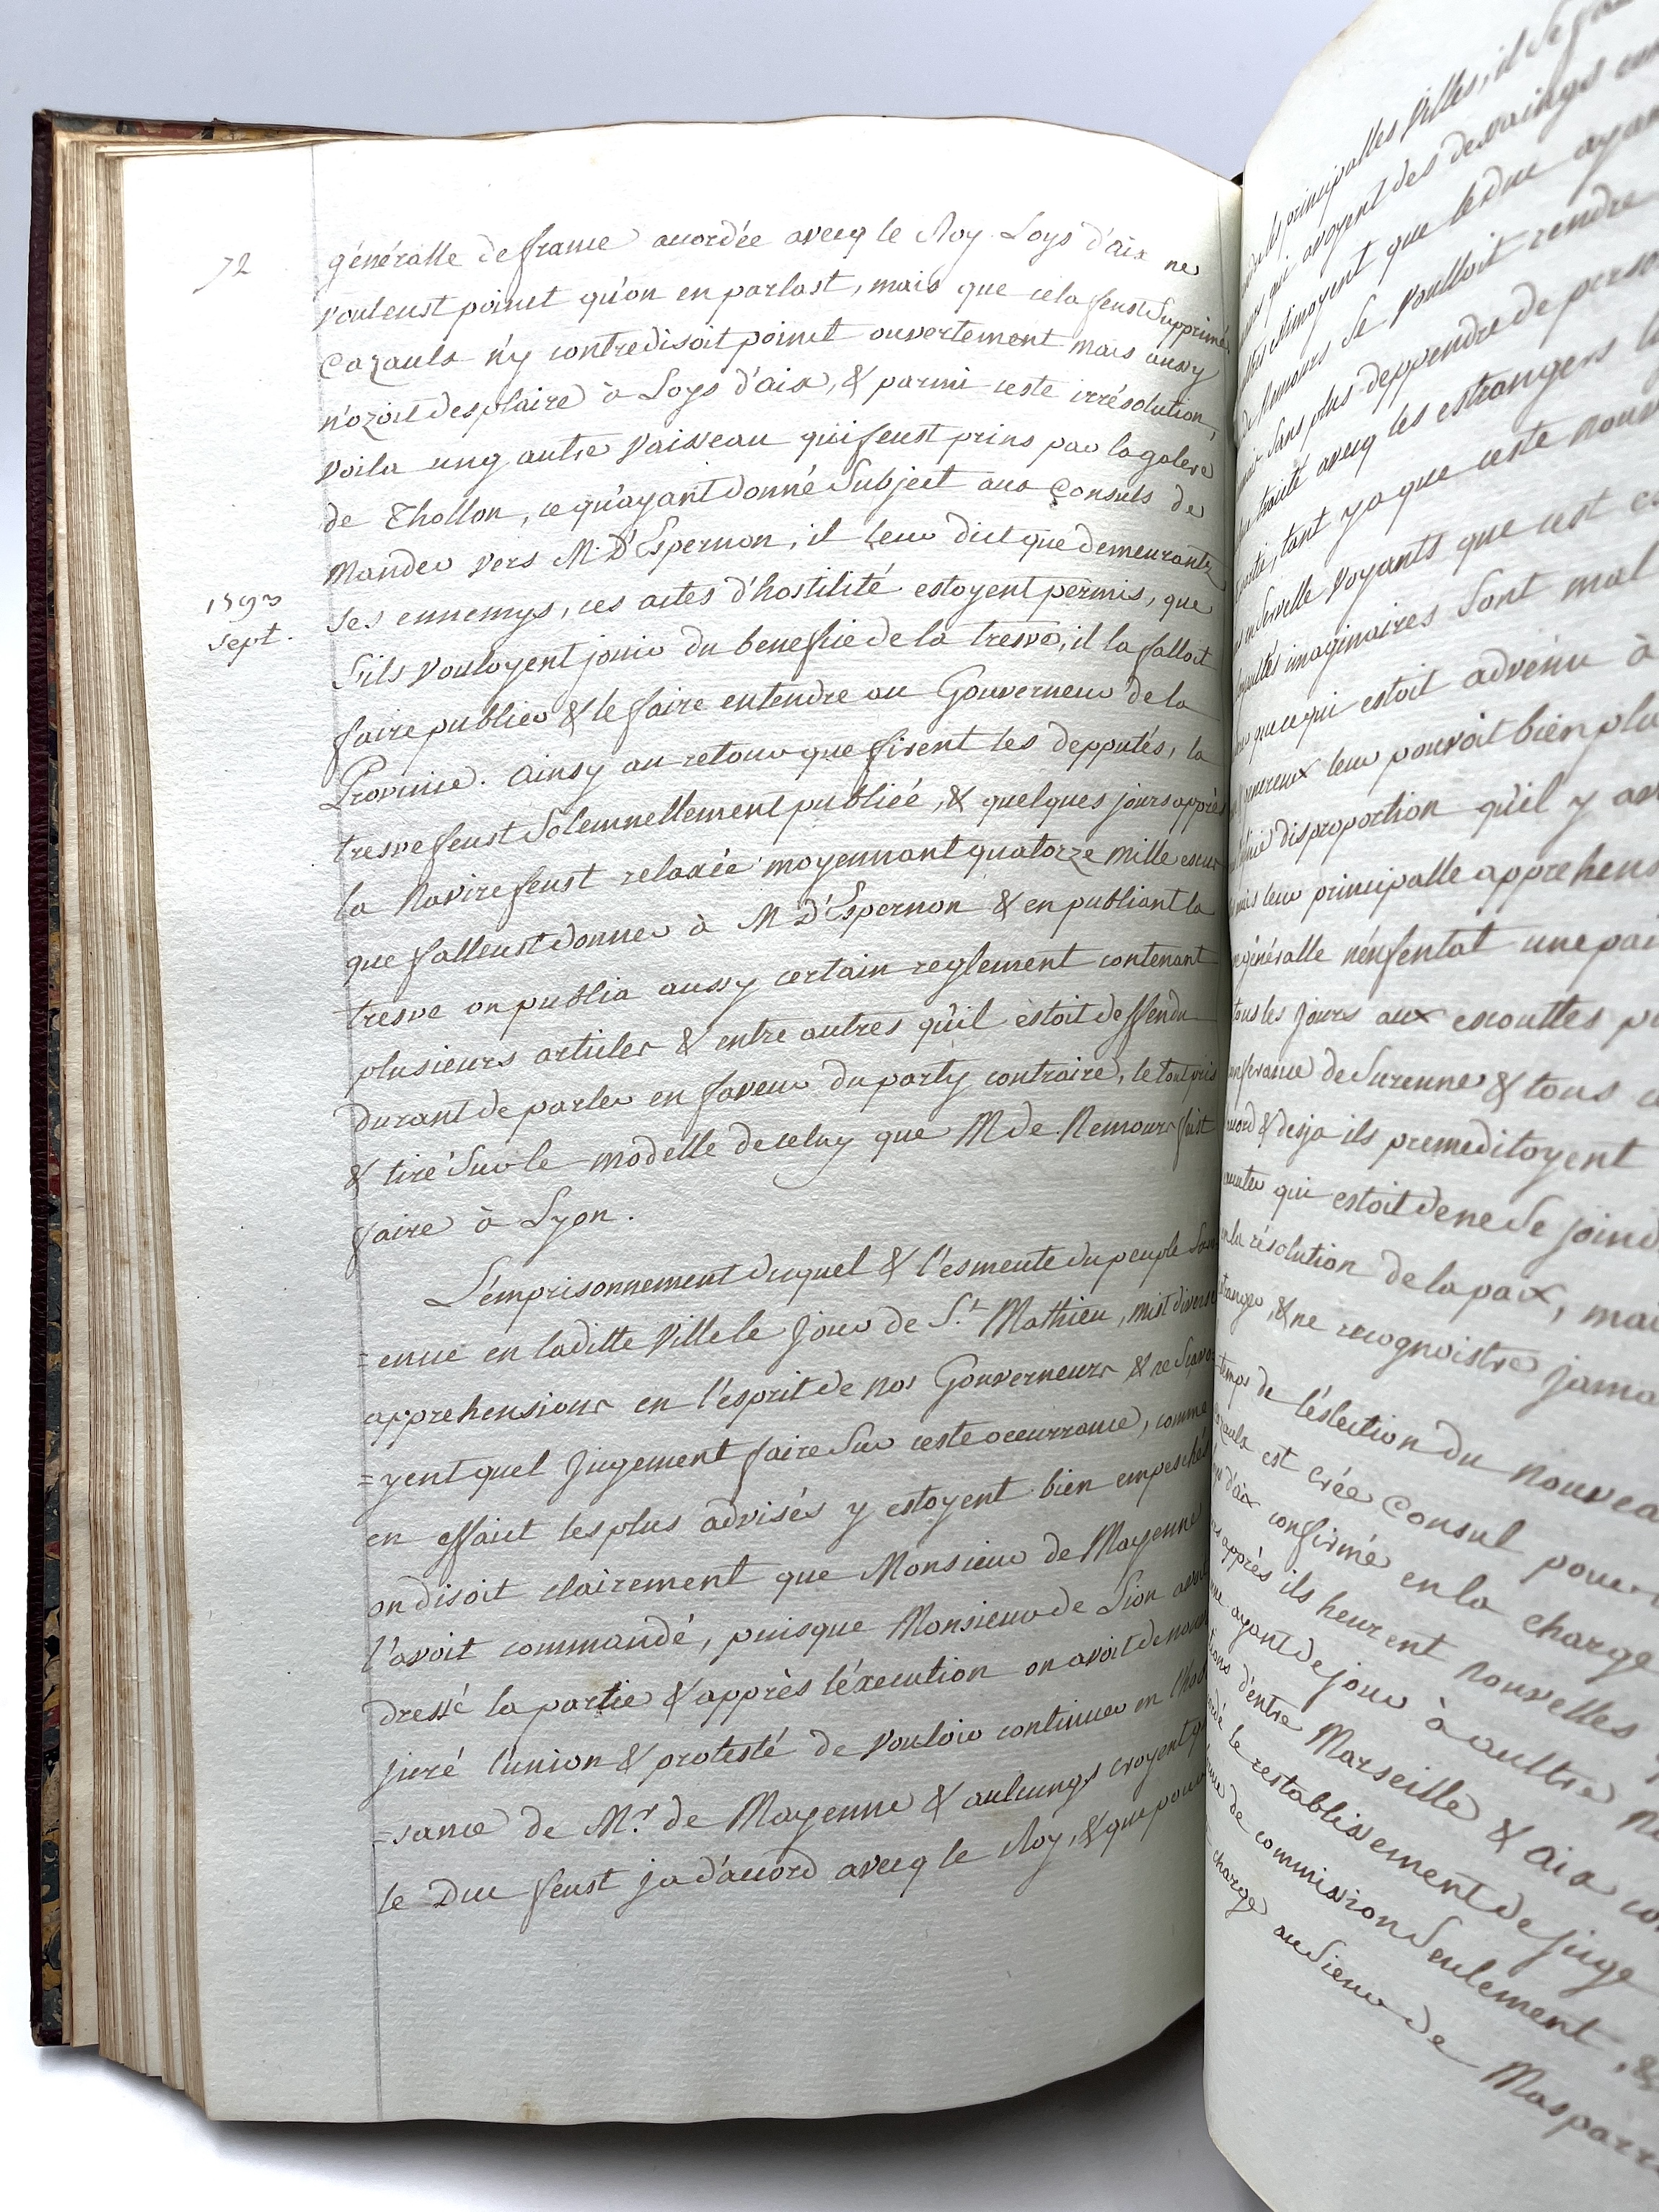 72
généralle de france accordée avecq le Roy Loys d'aix ne
vouleust poinct qu'on en parlast, mais que cela feust Supprimé
Cazaulx n'y contredisoit poinct ouvertement mais aussy
n'ozoit desplaire à Loys d'aix, & parmi ceste irrésolution,
voila ung autre vaisseau qui feust prins par la galere
de Thollon, ce qu'ayant donné Subject aux Consuls de
mander vers M. D'Espernon, il leur dict que demeurants
1593
sept.
ses ennemys, ces actes d'hostilité estoyent permis, que
s'ils vouloyent jouir du beneffice de la tresve, il la falloit
faire publier & le faire entendre au Gouverneur de la
Province. Ainsy au retour que firent les depputés, la
tresve feust Solemnellement publiée, & quelques jours apprès
la Navire feust relaxée moyennant quatorze mille escus
que falleust donner à M D'Espernon & en publiant la
tresve on publia aussy certain reglement contenant
plusieurs articles & entre autres qu'il estoit deffendu
durant de parler en faveur du party contraire, le tout pris
& tiré Sur le modelle de celuy que M de Nemours fist
faire à Lyon.
L'emprisonnement duquel & l'esmeute du peuple
=enue en laditte Ville le Jour de St. Mathieu, mist diverses
apprehensions en l'esprit de nos Gouverneurs & ne Sçavo
=yent quel Jugement faire Sur ceste occurrance, comme
en effaict les plus advisés y estoyent bien empeschés
on disoit clairement que Monsieur de Mayenne
l'avoit commandé, puisque Monsieur de Lion avoit
dressé la partie & apprès l'éxecution on avoit de nouv
juré l'union & protesté de vouloir continuer en l'hob
=sance de Mr. de Mayenne & aulcungs croyent q
le Duc feust ja d'accord avecq le Roy, & que pour
principalles Villes, il Se
qui avoyent des devaings
estimoyent que ledue ayan
Nemours Se voulloit rendre
Sans plus deppendre de perso
traité avecq les estrangers
tant y a que ceste nouv
voyants que cest
imaginaires Sont mal
que ce qui estoit advenu à
leur pouvoit bien plu
disproportion qu'il y av
leur principalle apprehens
généralle n'enfentat une pai
tous les Jours aux escouttes p
de Surenne & tous
& desja ils premeditoyent
qui estoit de ne Se joind
la résolution de la paix, mai
& ne recognoistre jama
temps de l'éslection du nouvea
est créée Consul pour
d'aix confirmé en la charge
apprès ils heurent nouvelles
ayant de jour à aultre
d'entre Marseille & Aix
le restablissement de juge
de commission Seulement, &
charge au Sieur de Masparr